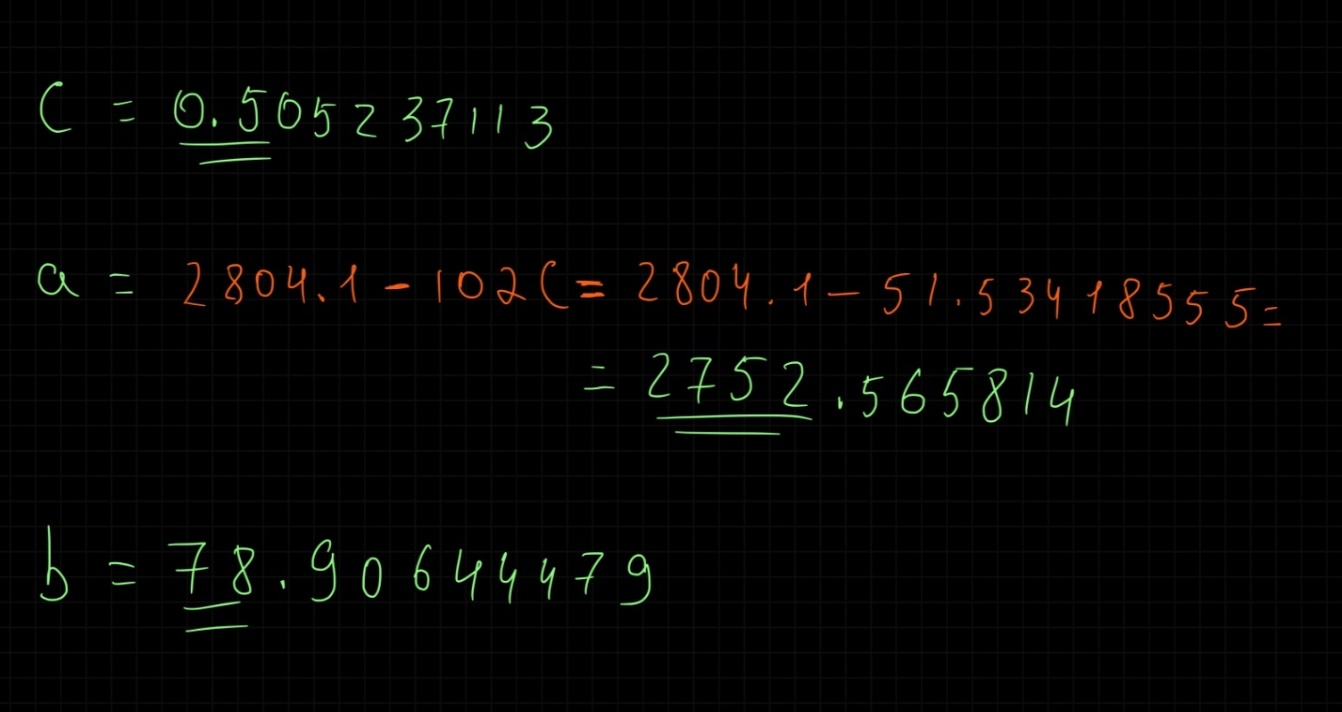 C = 0.505237113
a = 2804.1 - 102C = 2804.1 - 51.53418555 =
= 2752.565814
b = 78.90644479